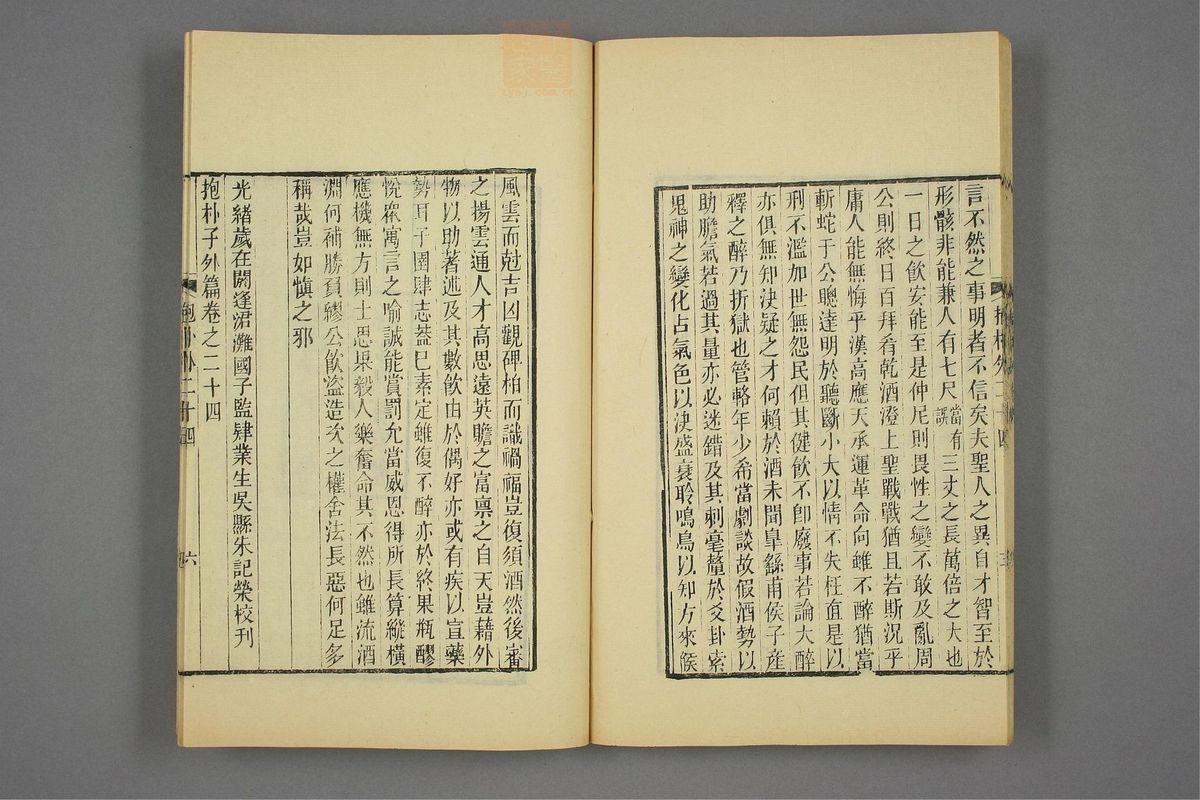 言不然之事明者不信矣夫聖人之異自才智至於
形骸非能兼人有七尺當有誤三丈之長萬倍之大也
一日之飲安能至是仲尼則畏性之變不敢及亂周
公則終日百拜肴乾酒澄上聖戰戰猶且若斯況乎
庸人能無悔乎漢高應天承運革命向雖不醉猶當
斬蛇于公聰達明於聽斷小大以情不失枉直是以
刑不濫加世無怨民但其健飲不卽廢事若論大醉
亦俱無知決疑之才何賴於酒未聞皐繇甫侯子產
釋之醉乃折獄也管輅年少希當劇談故假酒勢以
助膽氣若過其量亦必迷錯及其刺毫釐於爻卦索
鬼神之變化占氣色以決盛衰聆鳴鳥以知方來候
抱朴外二十四
風雲而尅吉凶觀碑柏而識禍福豈復須酒然後審
之揚雲通人才高思遠英贍之富稟之自天豈藉外
物以助著述及其數飲由於偶好亦或有疾以宣藥
勢耳子圉肆志葢已素定雖復不醉亦於終果瓶醪
悅衆寓言之喻誠能賞罰允當威恩得所長算縱橫
應機無方則士思果毅人樂奮命其不然也雖流酒
淵何補勝負繆公飲盜造次之權舍法長惡何足多
稱哉豈如愼之邪
光緒歲在閼逢涒灘國子監肄業生吳縣朱記榮校刊
抱朴子外篇卷之二十四
抱朴外二十四
六